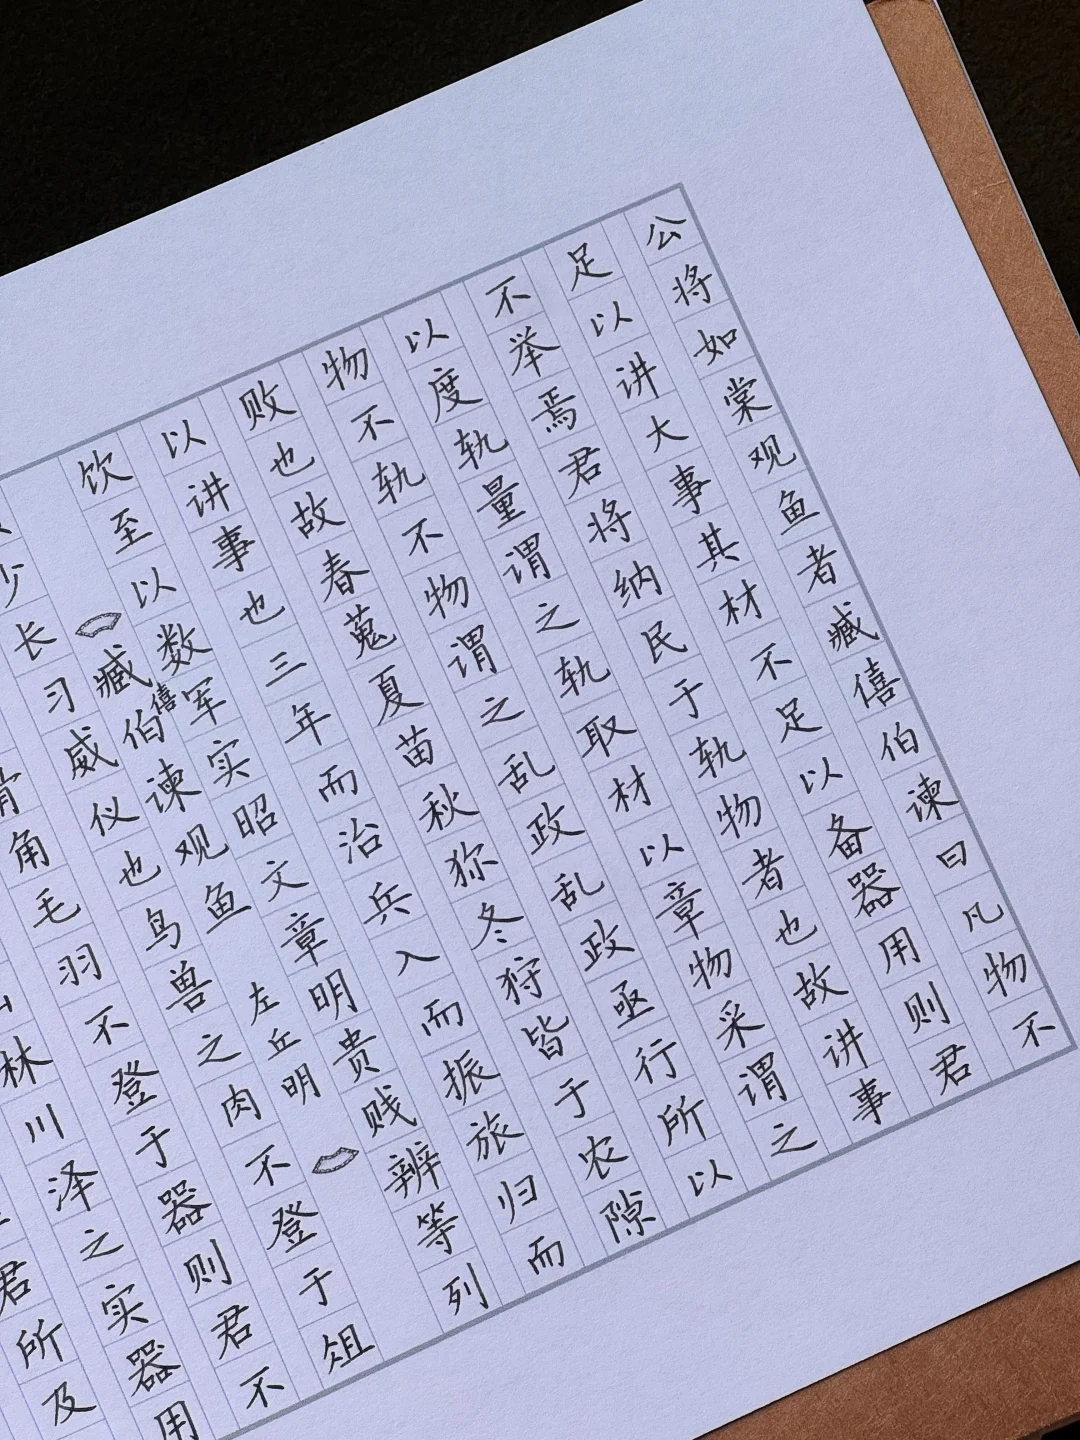 公将如棠观鱼者臧僖伯谏曰凡物不
足以讲大事其材不足以备器用则君
不举焉君将纳民于轨物者也故讲事
以度轨量谓之轨取材以章物采谓之
物不轨不物谓之乱政乱政亟行所以
败也故春蒐夏苗秋狝冬狩皆于农隙
以讲事也三年而治兵入而振旅归而
饮至以数军实昭文章明贵贱辨等列
臧僖伯谏观鱼
左丘明
少长习威仪也鸟兽之肉不登于俎
骨角毛羽不登于器则君不
林川泽之实器用
君所及